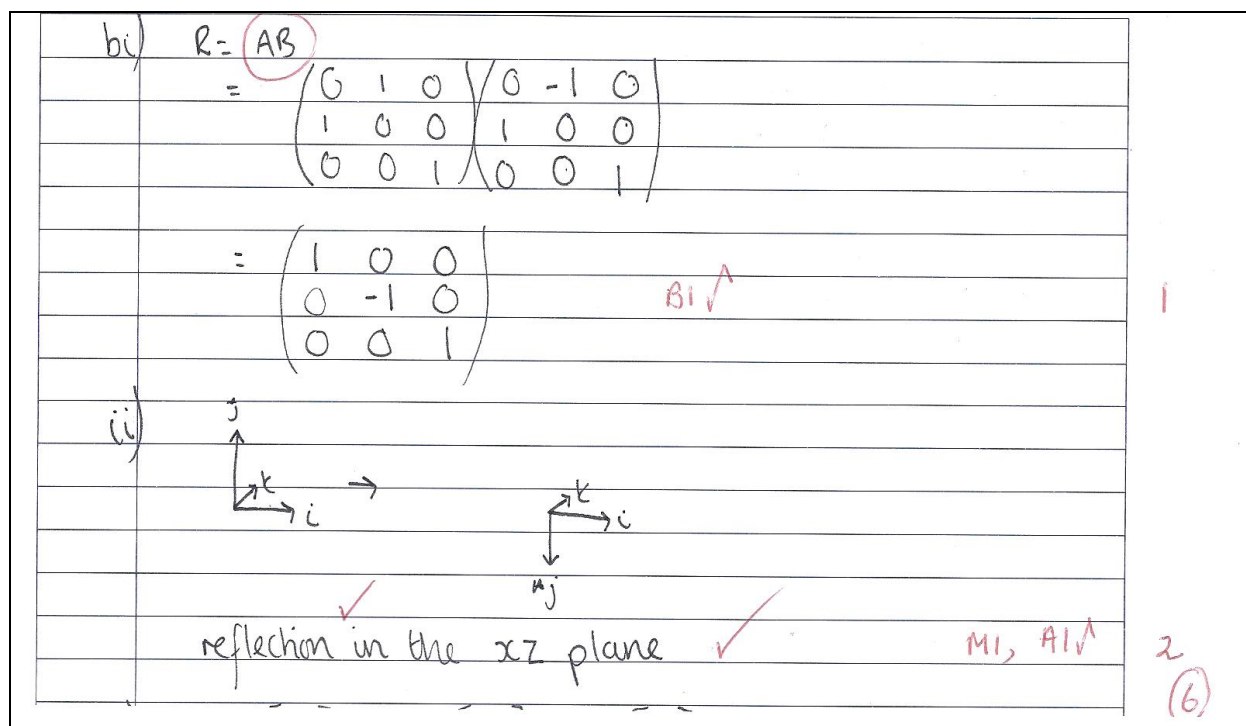 bi) R= AB
= (0 1 0) (0 -1 0)
(1 0 0) (1 0 0)
(0 0 1) (0 0 1)
= (1 0 0)
(0 -1 0) B1√ 1
(0 0 1)
ii) j
k → k
i i
j
reflection in the xz plane M1, A1√ 2
6